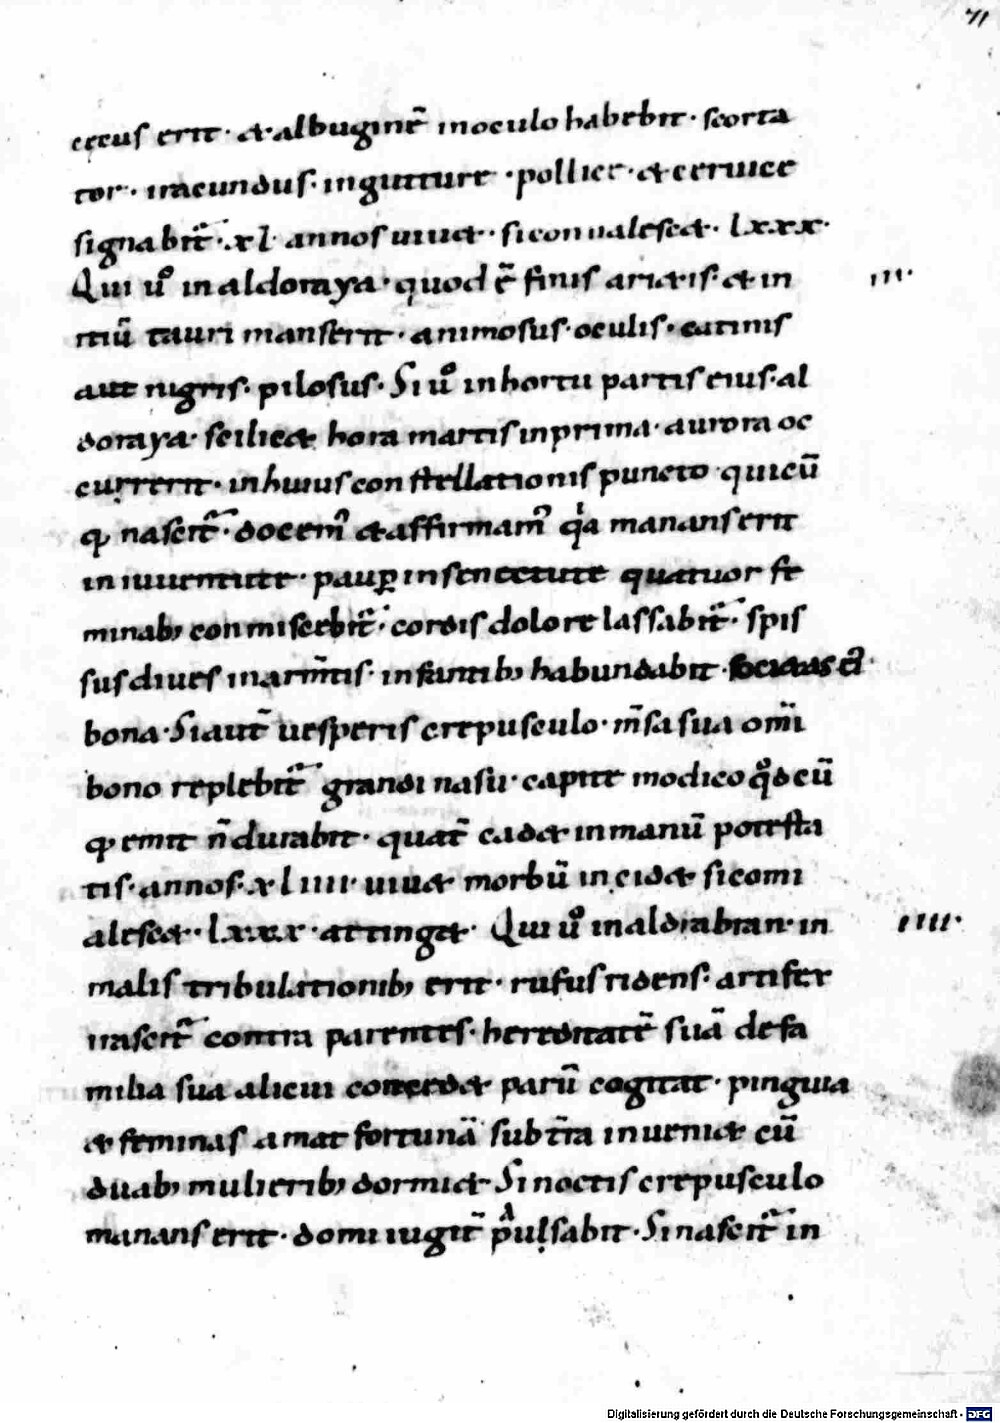 71
cęcus erit · & albuginē inoculo habebit · scorta
tor · iracundus · ingutture · pollice · & ceruice
signabit᷒ · xl · annos uiu& · siconualesc& · lxxx ·
Qui u° in aldoraya · quod ē finis ari&is · & in ııı ·
itiū tauri manserit · animosus · oculis · catinis
aut nigris · pilosus · Si u° inhortu partis eius · al
doraya · scilic& hora martis inprima · aurora oc
currerit · inhuius constellationis puncto · quicū
q nascit᷒ · docem᷒ & affirmam᷒ qa manans erit
in iuuentute · paup insenectute quatuor fe
minab; conmiscebit᷒ · cordis dolore lassabit᷒ · spis
sus diues inarm̄tis · infantib; habundabit · soci&as ei᷒
bona · Siaut̄ uesperis crepusculo · m̄sa sua om̄i
bono replebit᷒ grandi nasu · capite modico q°dcū
q emit n̄ durabit · quat̄ cad& inmanū potesta
tis · annos · xl iııı · uiu& morbū incid& siconu
alesc& · lxxx · atting& · Qui u° inaldrabran · in ıııı ·
malis tribulationib; erit · rufus ridens · artifex
nascit᷒ contra parentes · hereditatē suā defa
milia sua alicui conced& parū cogitat · pinguia
& feminas amat fortunā sub t̄ra inueni& cū
duab; mulierib; dormi& Sinoctis crepusculo
manans erit · domi iugit᷒ pulsabit · Sinascit᷒ in
Digitalisierung gefördert durch die Deutsche Forschungsgemeinschaft - DFG